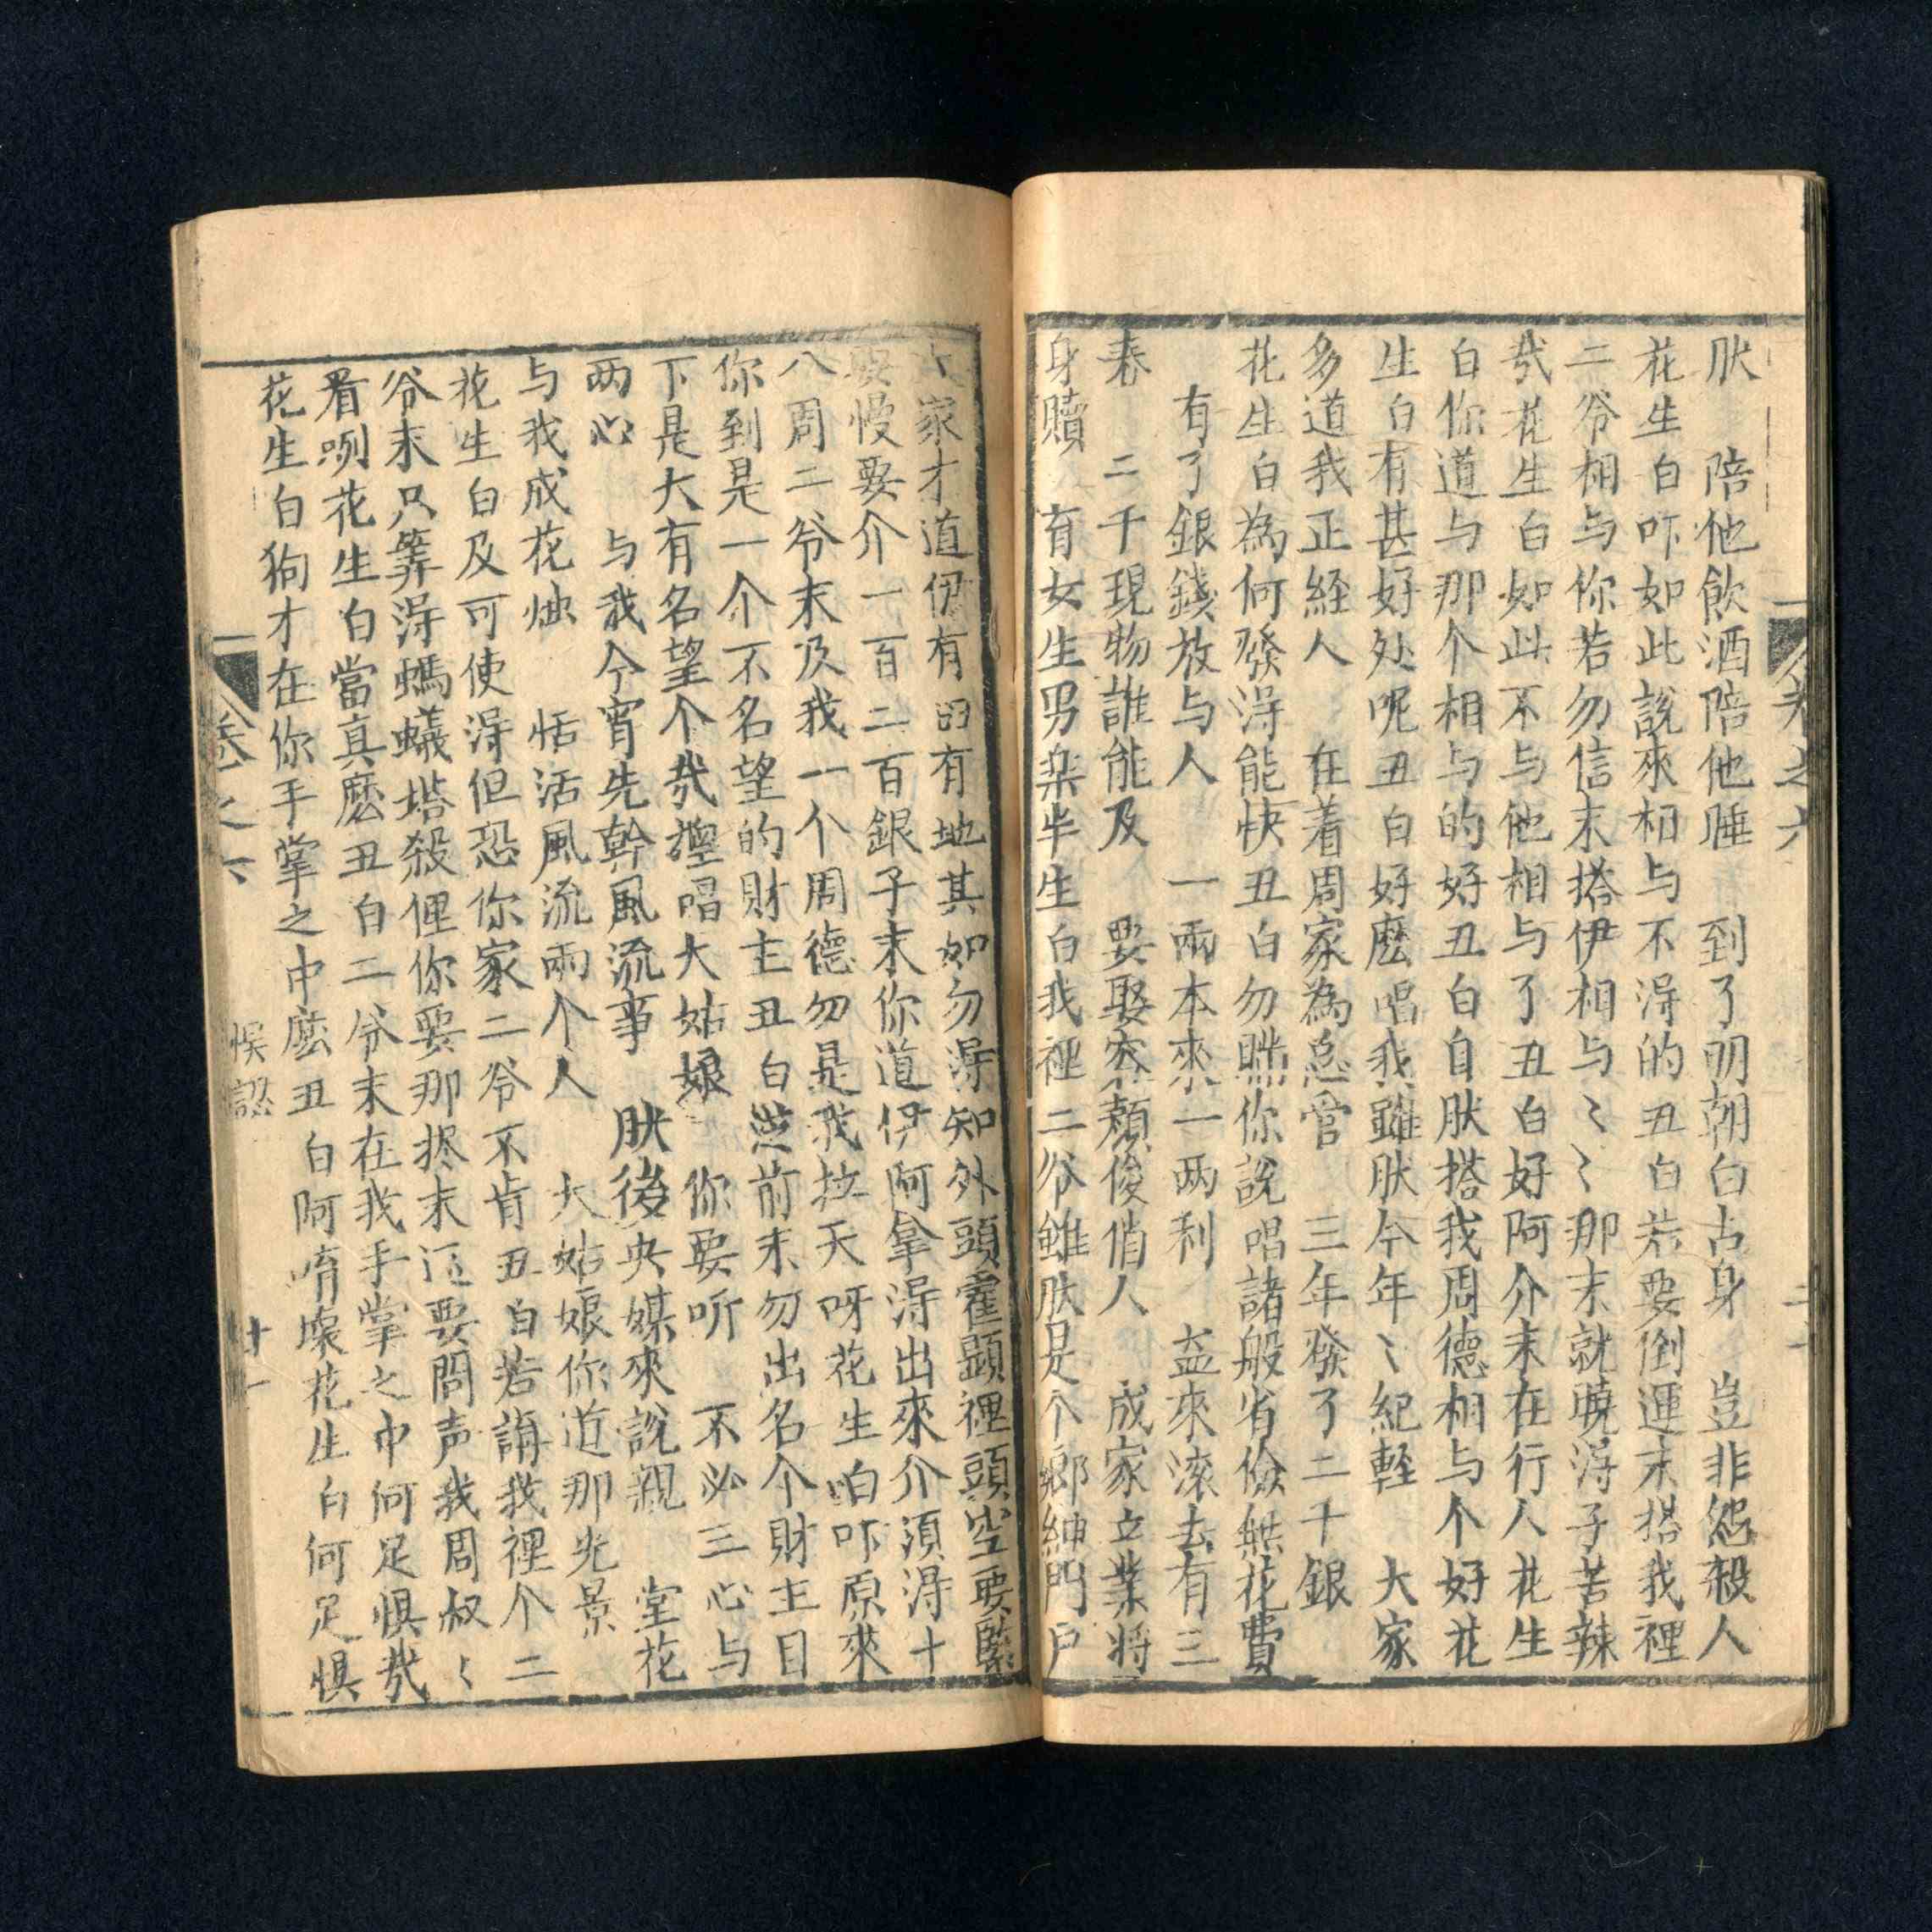 肰　陪他飲酒陪他睡　到了明朝白占身　豈非怨殺人
花生白吓如此說來相与不淂的丑白若要倒運末搭我裡
二爷相与你若勿信末搭伊相与〻〻那末就曉淂子苦辣
㢤花生白如此不与他相与了丑白好阿介末在行人花生
白你道与那个相与的好丑白自肰搭我周德相与个好花
生白有甚好处呢丑白好麽唱我雖肰今年〻紀輕　大家
多道我正経人　在着周家為总官　三年發了二千銀
花生白為何發淂能快丑白勿瞞你說唱諸般省儉無花費
有了銀錢放与人　一兩本來一两利　益來滚去有三
春　二千現物誰能及　要娶容顏俊俏人　成家立業将
身贖　育女生男樂半生白我裡二爷雖肰是个鄉紳門戶
大家才道伊有田有地其如勿淂知外頭霍顕裡頭空要緊
要慢要介一百二百銀子末你道伊阿拿淂出來介須淂十
八周二爷末及我一个周德勿是我拉天呀花生白吓原來
你到是一个不名望的財主丑白從前末勿出名个財主目
下是大有名望个㢤唱大姑娘　你要听　不必三心与
两心　与我今宵先幹風流事　肰後央媒來說親　堂花
与我成花烛　恬活風流兩个人　大姑娘你道那光景
花生白及可使淂但恐你家二爷不肯丑白若講我裡个二
爷末只筭淂螞蟻塔殺俚你要那捴末还要問声我周叔〻
看咧花生白當真麽丑白二爷末在我手掌之巾何足惧㢤
花生白狗才在你手掌之中麽丑白阿唷壞花生白何足惧
卷之六
悞認
廿一
卷之六